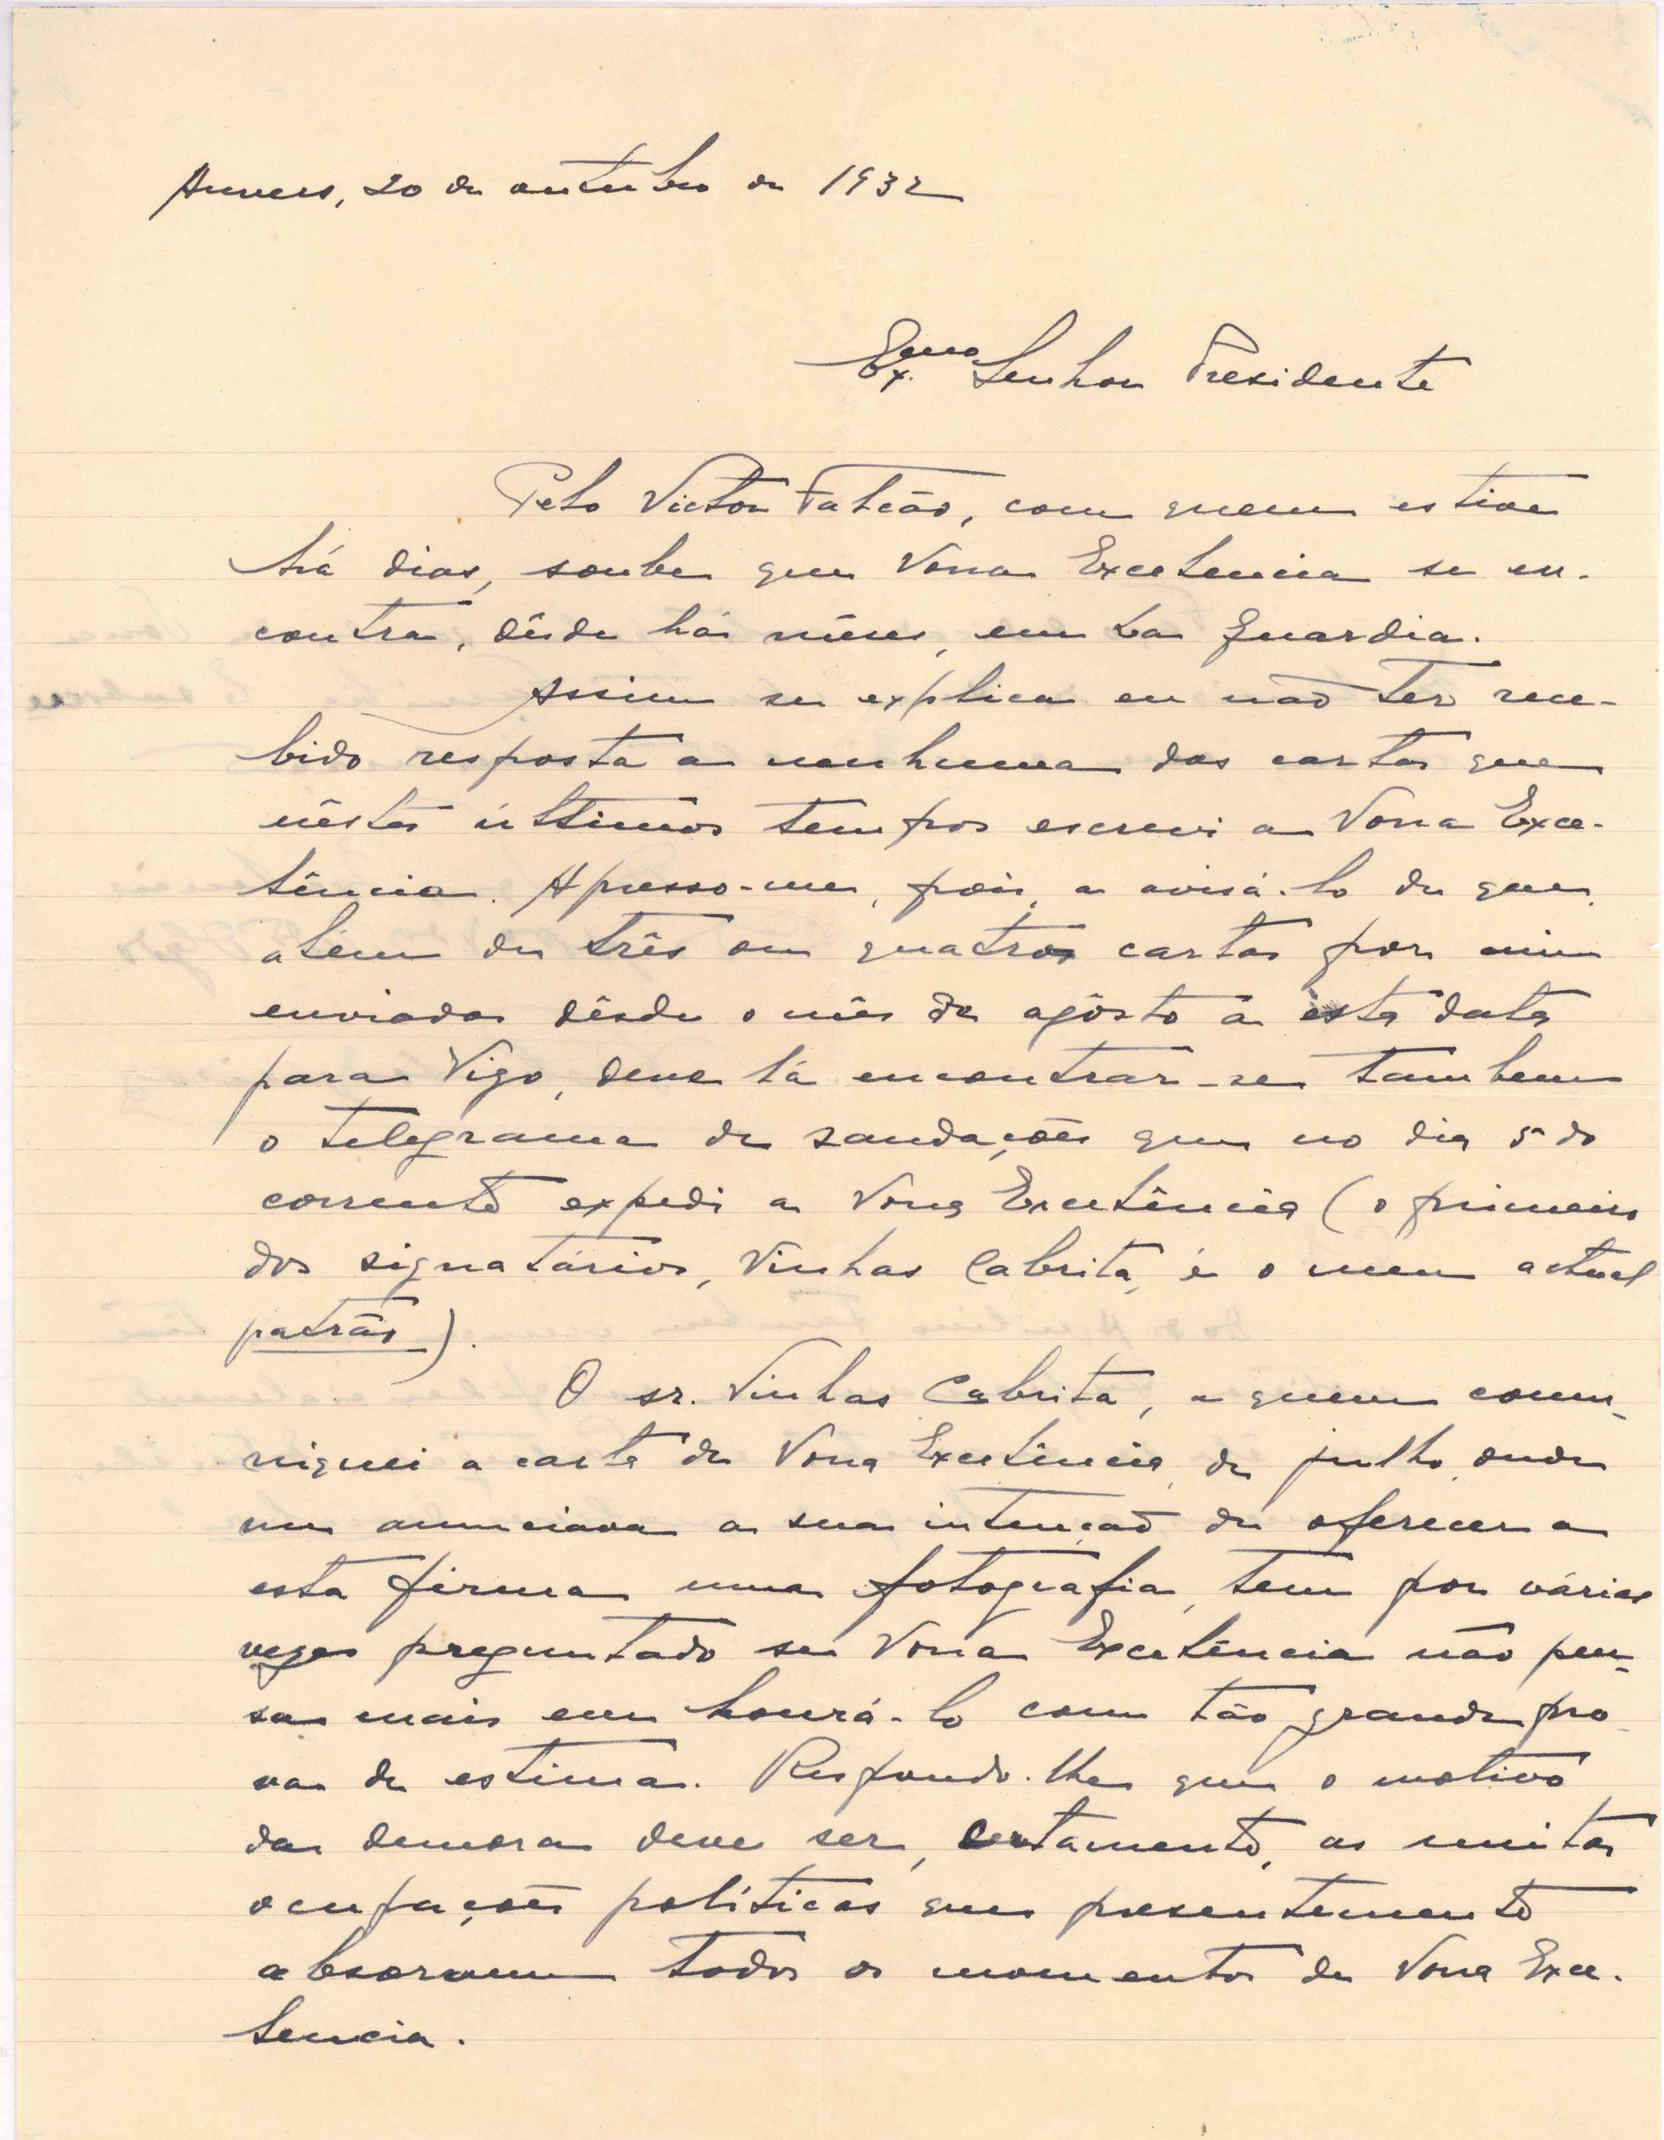 Anvers, 20 de outubro de 1932
Ex.mo Senhor Presidente
Pelo Victor Falcão, com quem estive
há dias, soube que Vossa Excelencia se en-
contra, dêsde há mêses, em La Guardia.
Assim se explica eu não ter rece-
bido resposta a nenhuma das cartas que
nêstes últimos tempos escrevi a Vossa Exce-
lência. Apresso-me, pois, a avisá-lo de que,
alêm de três ou quatro cartas por mim
enviadas dêsde o mês de agôsto a esta data
para Vigo, deve lá encontrar-se tambem
o telegrama de saudações que no dia 5 do
corrente expedi a Vossa Excelência (o primeiro
dos signatários, Vinhas Cabrita, é o meu actual
patrão).
O sr. Vinhas Cabrita, a quem comu-
niquei a carta de Vossa Excelência, de julho, onde
me anunciava a sua intenção de oferecer a
esta firma uma fotografia, tem por várias
vezes preguntado se Vossa Excelência não pen-
sa mais em honrá-lo com tão grande pro-
va de estima. Respondo-lhe que o motivo
da demora deve ser, certamente, as muitas
ocupações políticas que presentemente
absorvem todos os momentos de Vossa Exce-
lencia.